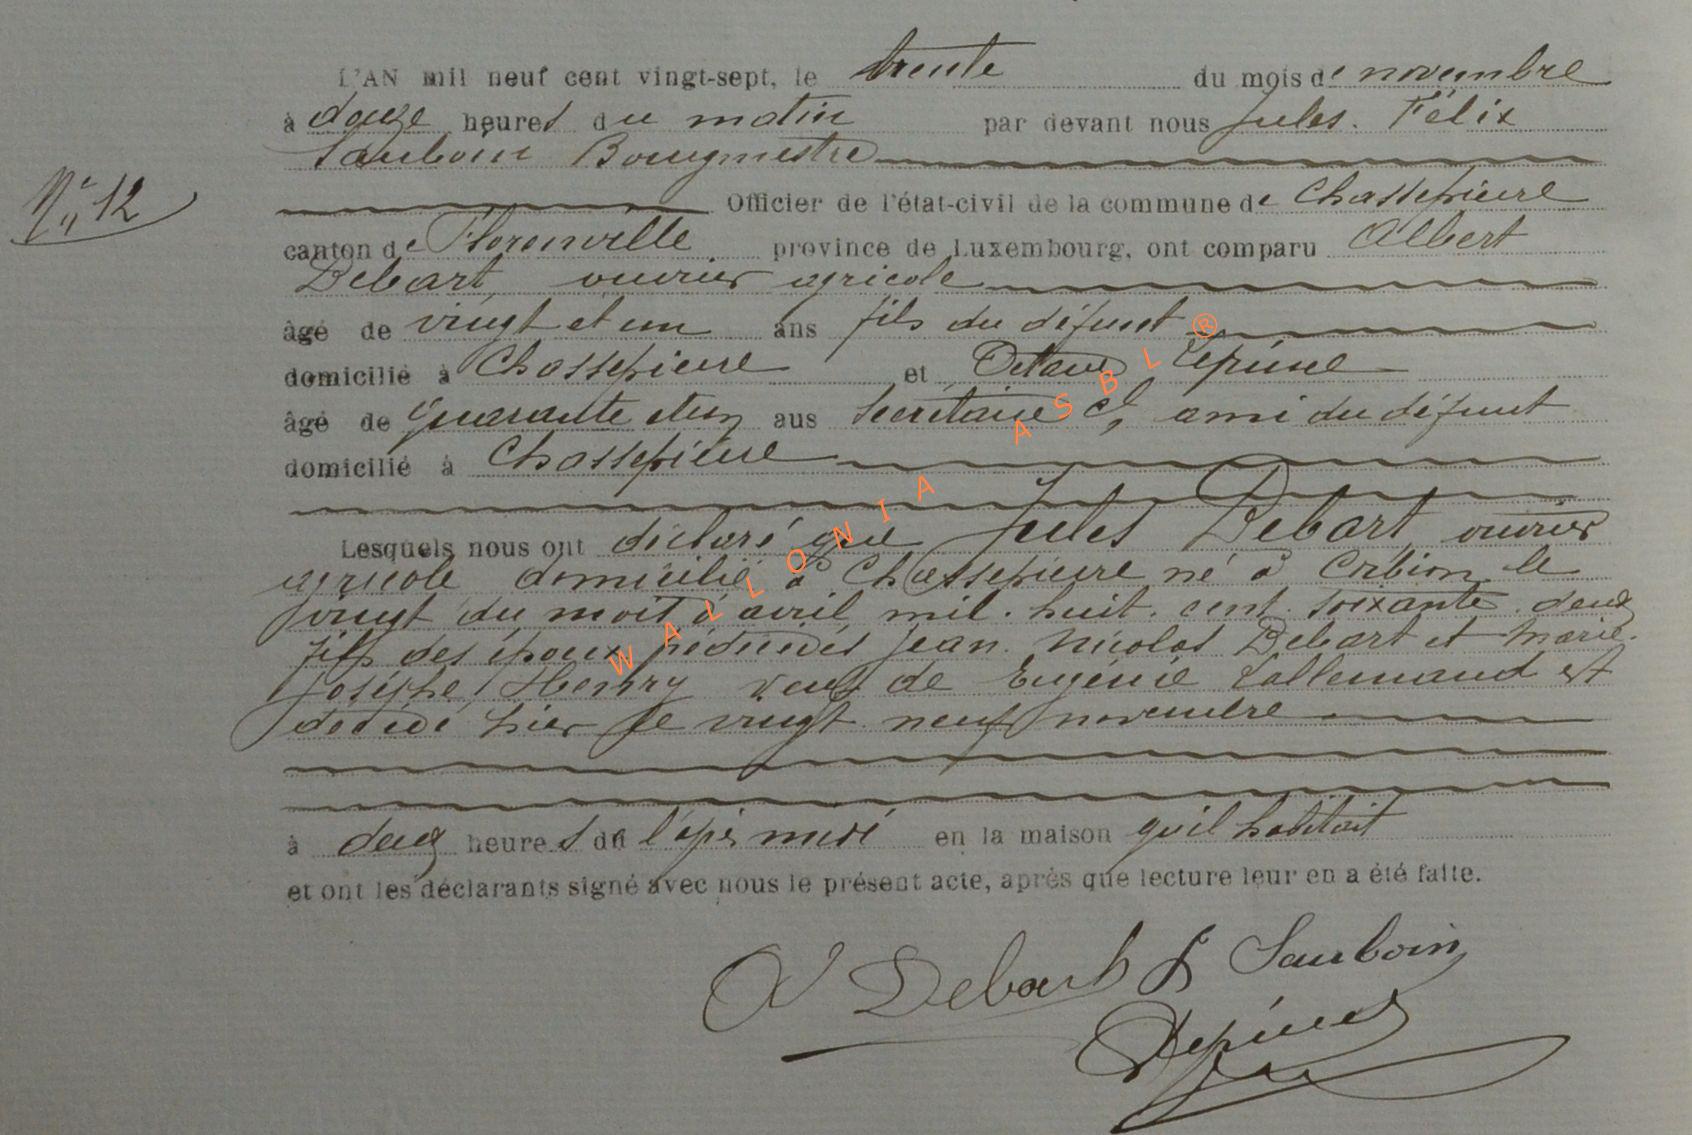 L'AN mil neuf cent vingt-sept, le trente du mois de novembre
à douze heures du matin par devant nous Jules. Félix
Sauboin Bourgmestre
N° 12
Officier de l'état-civil de la commune de Chassepierre
canton de Florenville province de Luxembourg, ont comparu Albert
Debart, ouvrier agricole
âgé de vingt et un ans fils du défunt
domicilié à Chassepierre et Octave Lepinel
âgé de quarante et un aus Secrétaire Cl, ami du défunt
domicilié à Chassepierre
Lesquels nous ont déclaré que Jules Debart, ouvrier
agricole domicilié à Chassepierre né à Corbion le
vingt du mois d'avril mil. huit. cent. soixante. deux
fils des époux prédécédés Jean. Nicolas Debart et Marie.
Josèphe Henry veuf de Eugénie Lallemand est
décédé hier le vingt neuf novembre
à deux heures de l'après midi en la maison qu'il habitait
et ont les déclarants signé avec nous le présent acte, après que lecture leur en a été faite.
A Debart F Sauboin
WALLONIA ASBL ®